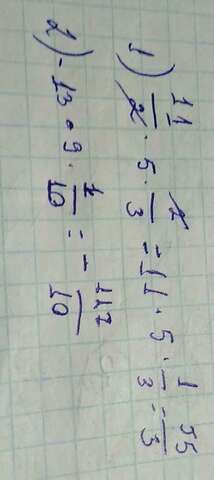 1) 11/2 · 5 · 2/3 = 11 · 5 · 1/3 = 55/3
2) -13 · 9 · 1/10 = - 117/10